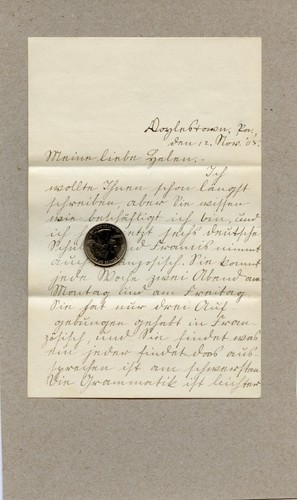 Doylestown, Pa.,
den 12. Nov. '05.
Meine liebe Helen,-
Ich
wollte Ihnen schon längst
schreiben, aber Sie wissen
wie beschäftigt ich bin, und
ich jetzt sechs deutsche
und Francis nimmt
auch französisch. Sie kommt
jede Woche zwei Abend am
Montag und am Freitag
Sie hat nur drei Auf
gebungen gehabt in Fran
zösisch, und Sie findet was
ein jeder findet das aus-
sprechen ist am schwersten
Die Grammatik ist leichter